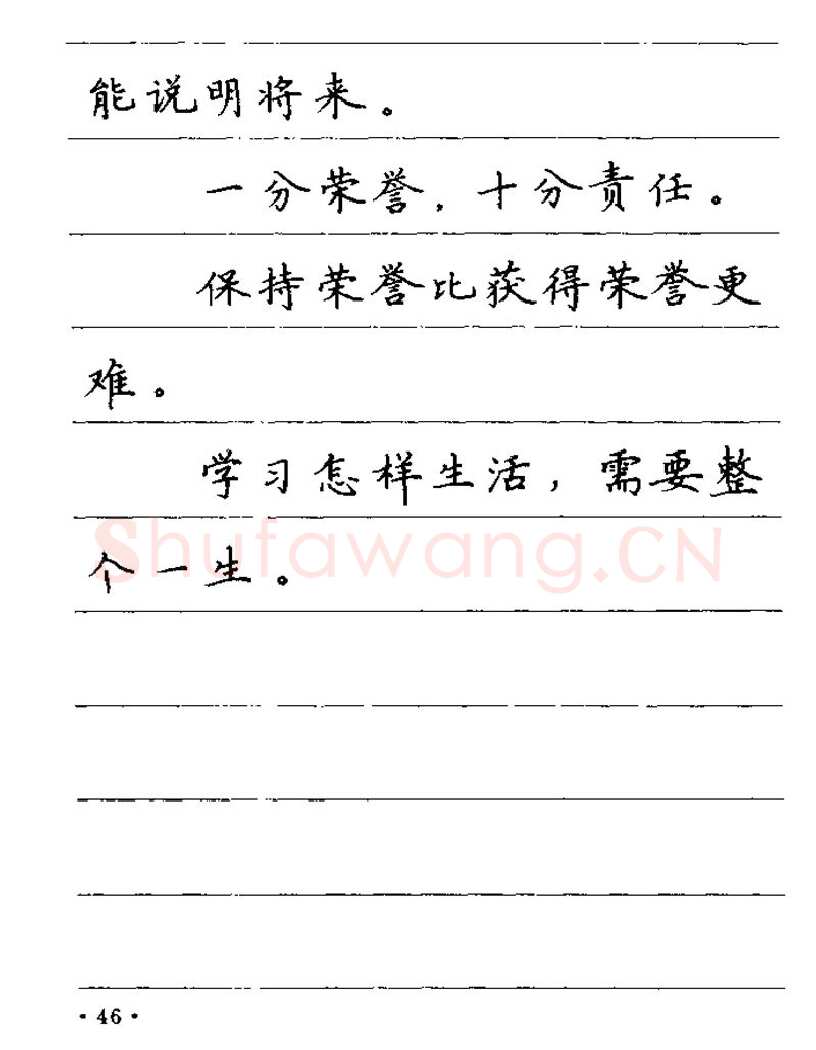 能说明将来。
一分荣誉，十分责任。
保持荣誉比获得荣誉更
难。
学习怎样生活，需要整
个一生。
Shufawang.CN
·46·